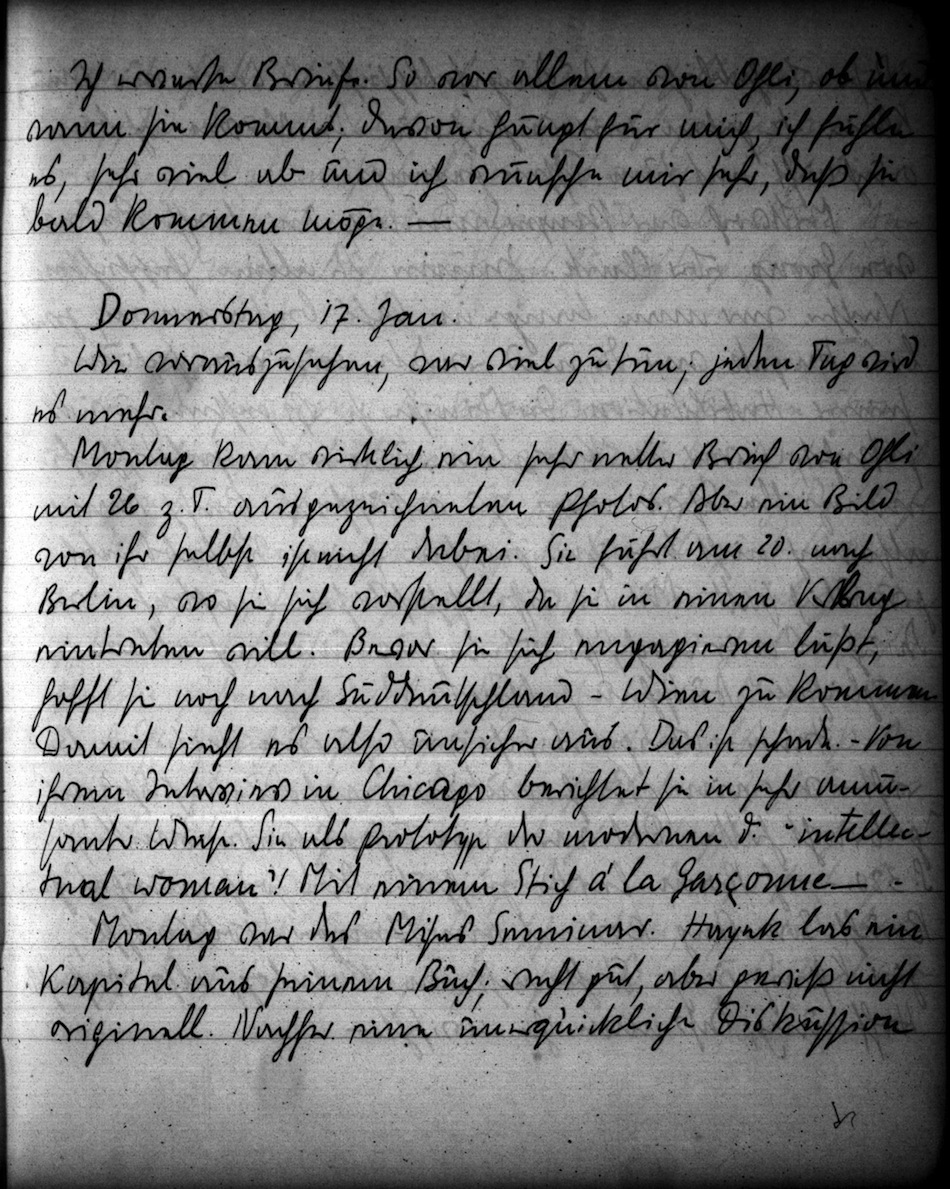 Ich erwarte Briefe. So vor allem von Ogli, ob und
wann sie kommt; davon hängt für mich, ich fühle
es, sehr viel ab und ich wünsche mir sehr, daß sie
bald kommen möge. —
Donnerstag, 17. Jan.
Wie vorauszusehen, war viel zu tun; jeden Tag wird
es mehr.
Montag kam wirklich ein sehr netter Brief von Ogli
mit 26 z. T. ausgezeichneten Photos. Aber ein Bild
von ihr selbst ist nicht dabei. Sie fährt am 20. nach
Berlin, wo sie sich vorstellt, da sie in einen Verlag
eintreten will. Bevor sie sich engagieren läßt,
hofft sie noch nach Süddeutschland - Wien zu kommen.
Damit sieht es also unsicher aus. Das ist schade. - Von
ihrem Interview in Chicago berichtet sie in sehr amü-
santer Weise. Sie als Prototyp der modernen d. "intellec-
tual woman"! Mit einem Stich á la Garçonne — -
Montag war das Mises Seminar. Hayek las ein
Kapitel aus seinem Buch; recht gut, aber gewiß nicht
originell. Nachher eine unerquickliche Diskussion